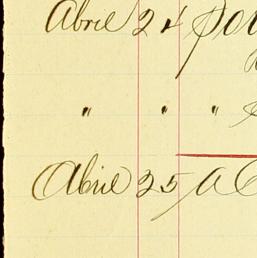 Abril 24
" " "
Abril 25 A